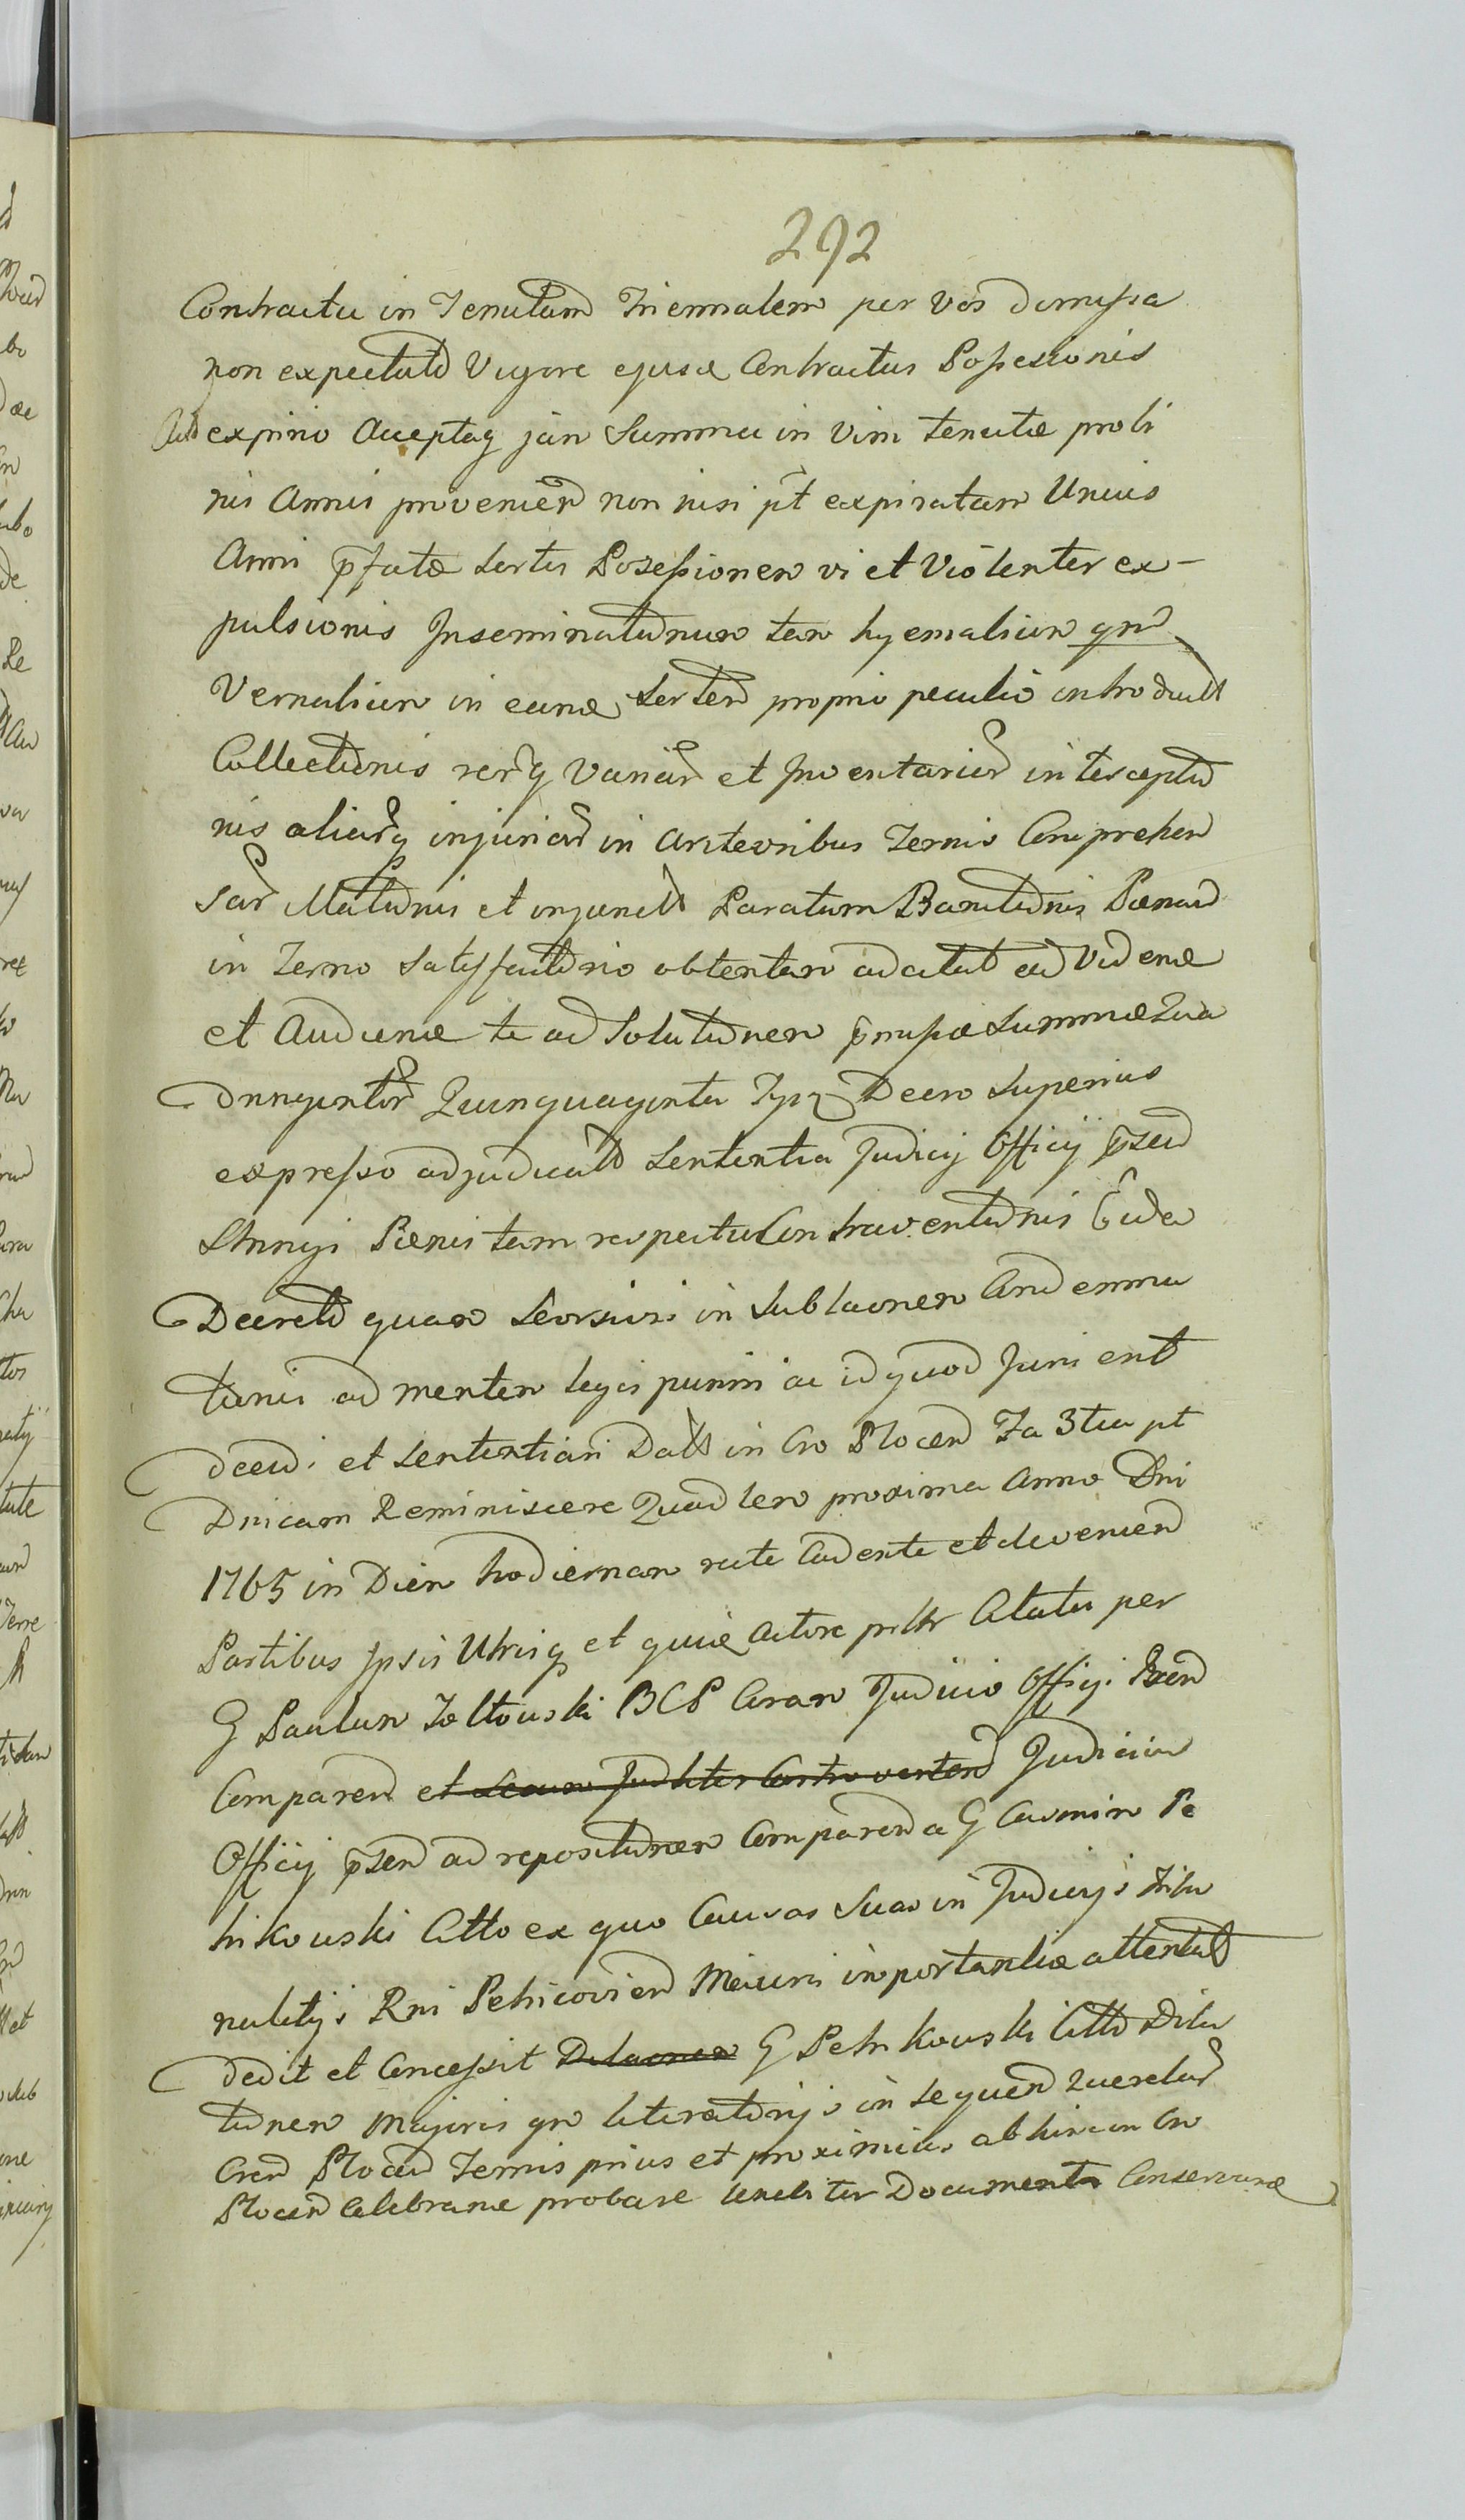 292
Contractu in Tenutam Triennalem per Vos dimissa
non expectato Vigore ejusd Contractus Possessionis
expirio Acceptaq jan Summa in Vim tenutæ pro bi
nis Annis provenien non nisi pt expiratam Unius
Anni pfatæ Sortis Possessionem vi et Violenter ex-
pulsionis Inseminationum tam hyemalium qm
Vernalium in eand Sortem proprio peculio introduct
Collectionis rerq Variar et Inventarior interceptio
nis aliarq injuriar in Anterioribus Termis Comprehen
sar Mationis et injunctt Paratam Banitionis Pænam
in Termo Satisfactorio obtentam ad citat ad Videnæ
et Audienæ te ad Solutionem pmissæ Summæ Qua
dringentor Quinquaginta Tyz Decro Superius
expresso adjudicatt Sententia Judicij Officij psen
Stringi Pænis tam respectu Contraventionis Eidem
Decreto quam Seorsivis in Sublaonem Condemna
tionis ad mentem legis puniri ac id quod Juris erit
decerni et Sententiari Datt in Cro Plocen Fa 3tia pt
Dnicam Reminiscere Quadlem proxima Anno Dni
1765 in Diem hodiernam recte Cadente et devenien
Partibus Ipsis Utrisq et quid Actore prltr Citatus per
G Paulum Zoltowski BCP Coram Judicio Officij Psen
Comparen et Judliter Controverten Judicium
Officij psen ad repositionem Comparen a G Casimiro Pe
trikowski Citto ex quo Causas Suas in Judicijs Tribu
nalitijs Rni Petricovien Majoris importantiæ attentatt
dedit et Concessit Dilaonem G Petrikowski Citto Dila
tionem Majoris gro literatorijs in Sequen Querelar
Cren Plocen Termis prius et proximius ab hinc in Cro
Plocen Celebrane probare tenebitur Documenta Conservanæ